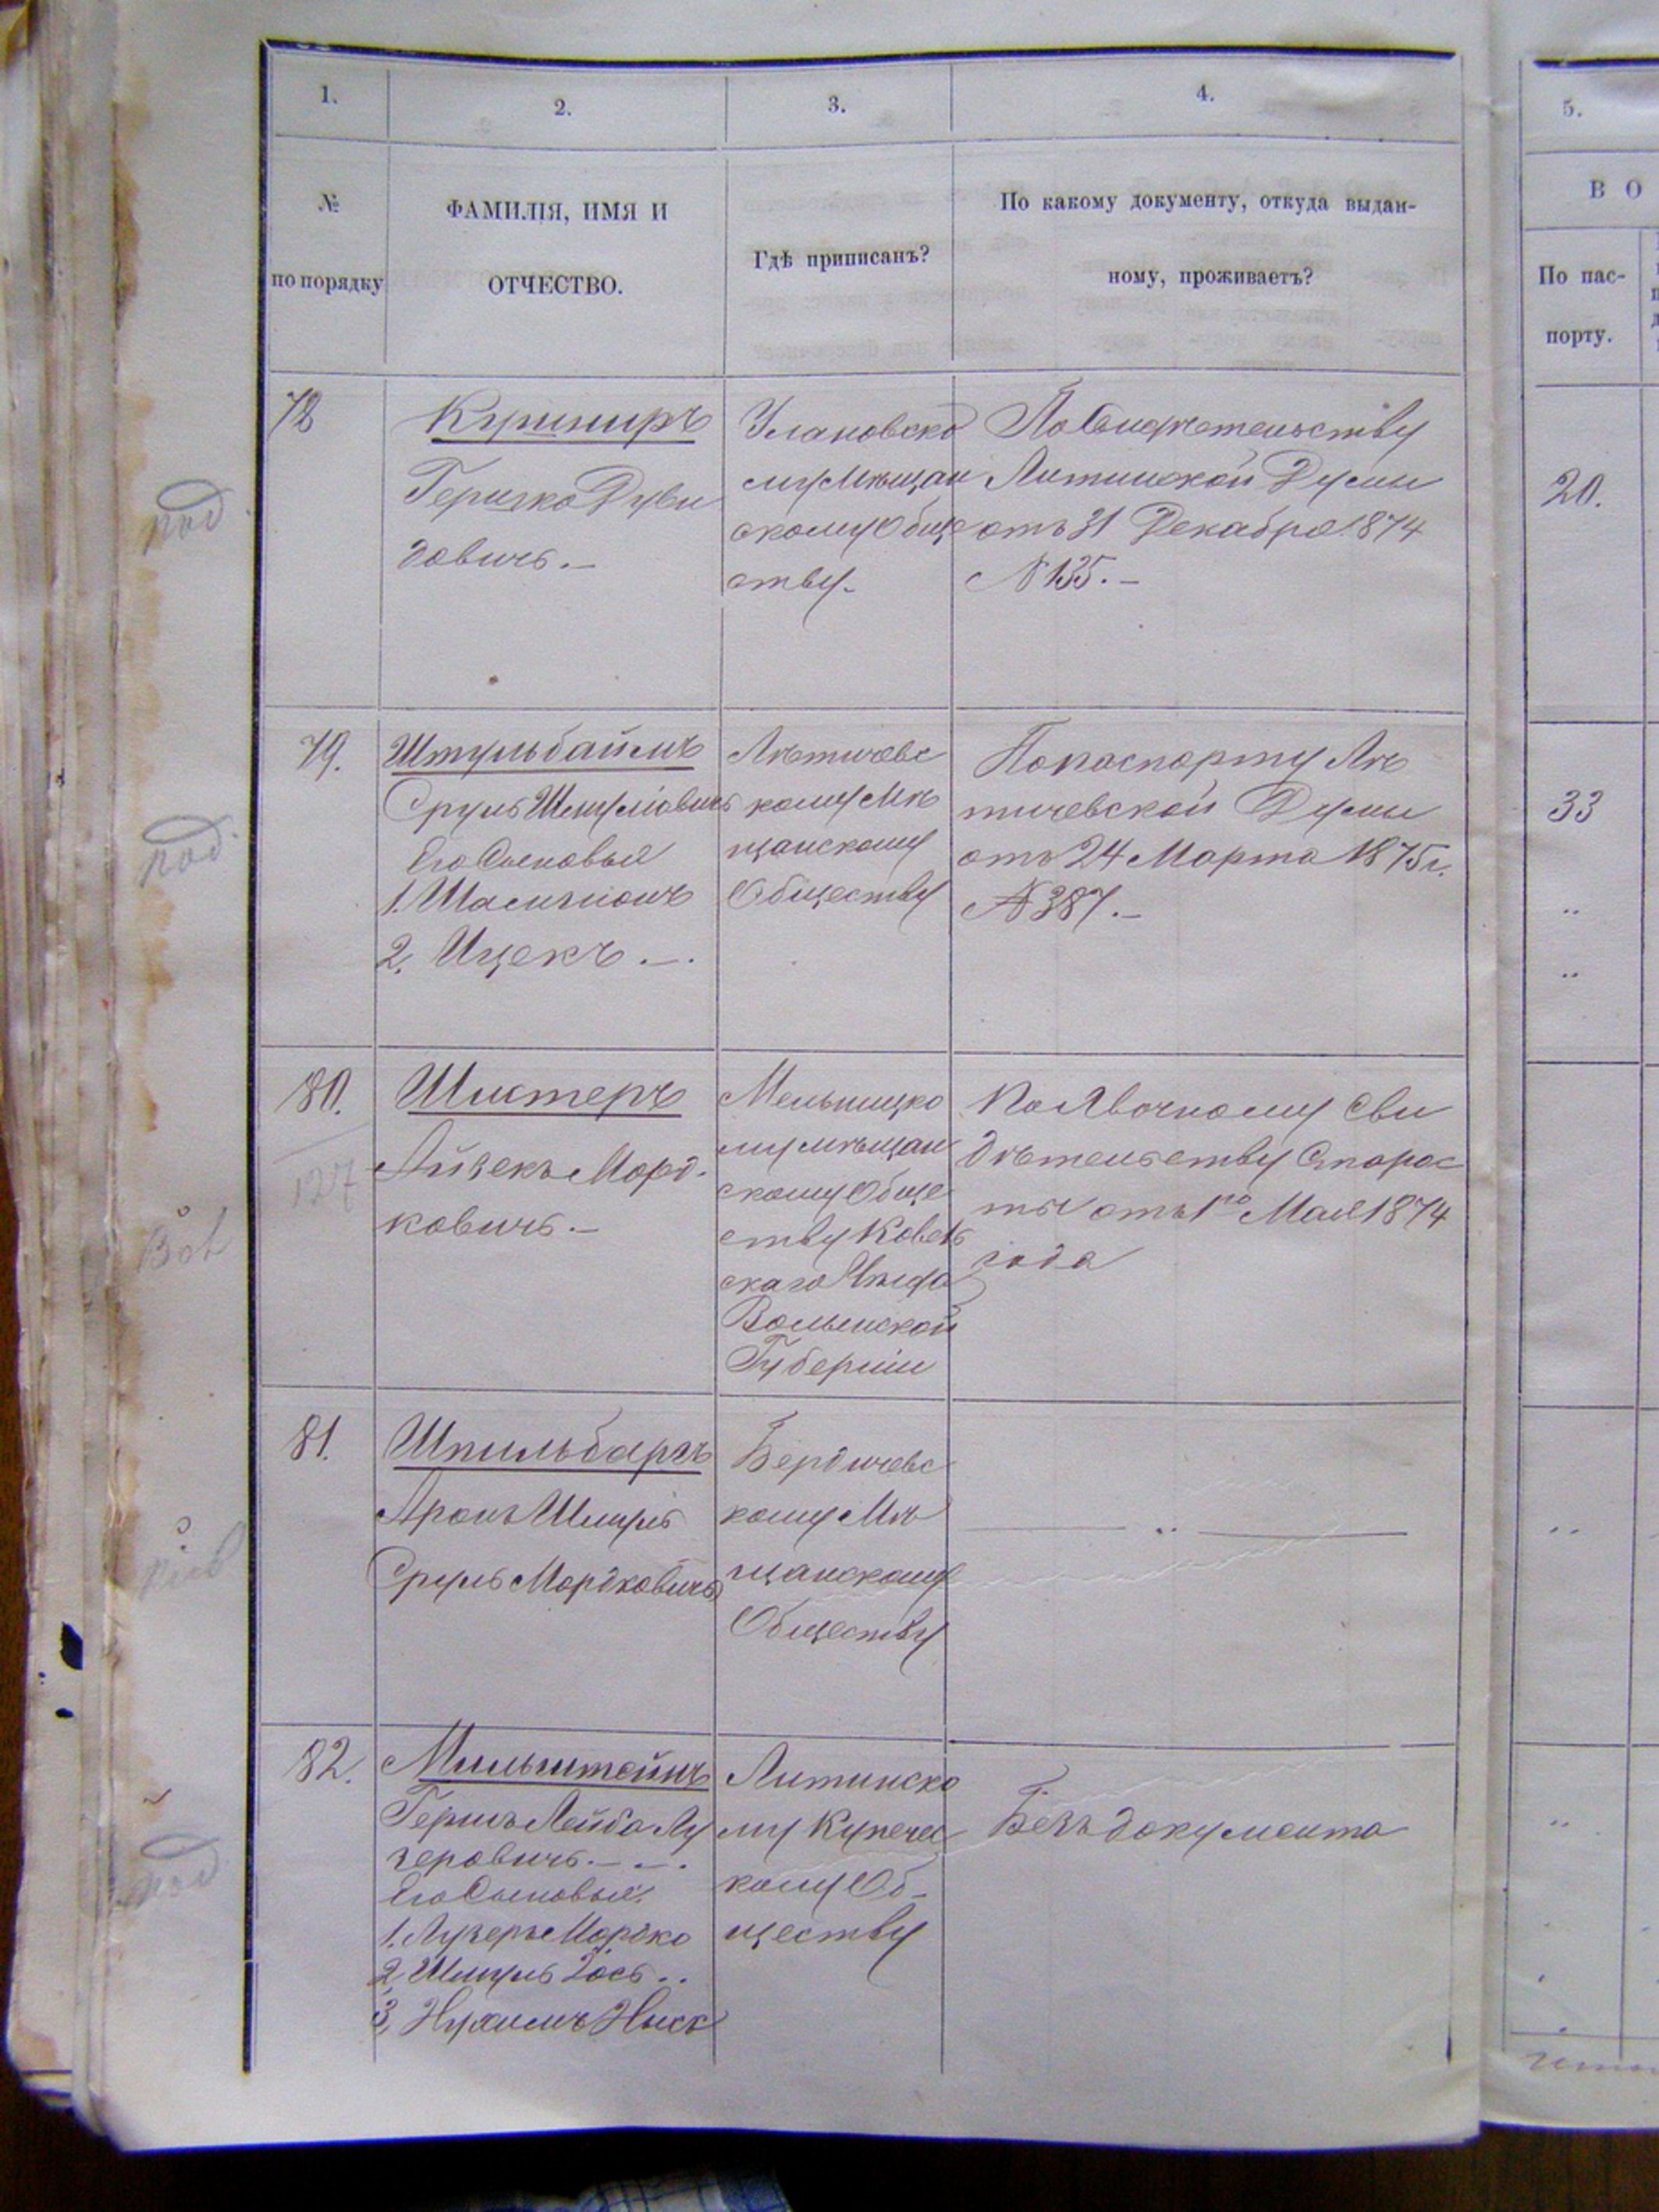 1.
2.
3.
4.
5.
№
по порядку
ФАМИЛІЯ, ИМЯ И
ОТЧЕСТВО.
Гдѣ приписанъ?
По какому документу, откуда выдан-
ному, проживаетъ?
В О
По пас-
порту.
78
Кушниръ
Гершко Дуви
довичъ.—
Улановско
му Мѣщан
скому Обще
ству.
По Свидѣтельству
Литинской Думы
отъ 31 Декабря 1874
№ 135.—
20.
под
79.
Штульбаймъ
Сруль Шмулiовичъ
Его Сыновья
1. Шлиомъ
2. Ицекъ.—.
Лѣтичевс
кому Мѣ
щанскому
Обществу
По паспорту Лѣ
тичевской Думы
отъ 24 Марта 1875 г.
№ 387.—
33
под.
80.
127
Шистеръ
Айзекъ Морд-
ковичъ.—
Мельницко
му мѣщан
скому Обще
ству Ковель
скаго Уѣзда
Волынской
Губерніи
По Явочному Сви
дѣтельству Старос
ты отъ 1го Мая 1874
года
Вол
81.
Шпильбаргъ
Аронъ Шмуль
Сруль Мордковичъ
Бердичевс
кому Мѣ
щанскому
Обществу
— „ —
Кіев
82.
Мильштейнъ
Гершъ Лейба Лу
зеровичъ.—.—.
Его Сыновья:
1. Лузеръ Мордко
2, Шмуль Іось..
3, Нухимъ
Литинско
му Купечес
кому Об-
ществу
Безъ документа
под